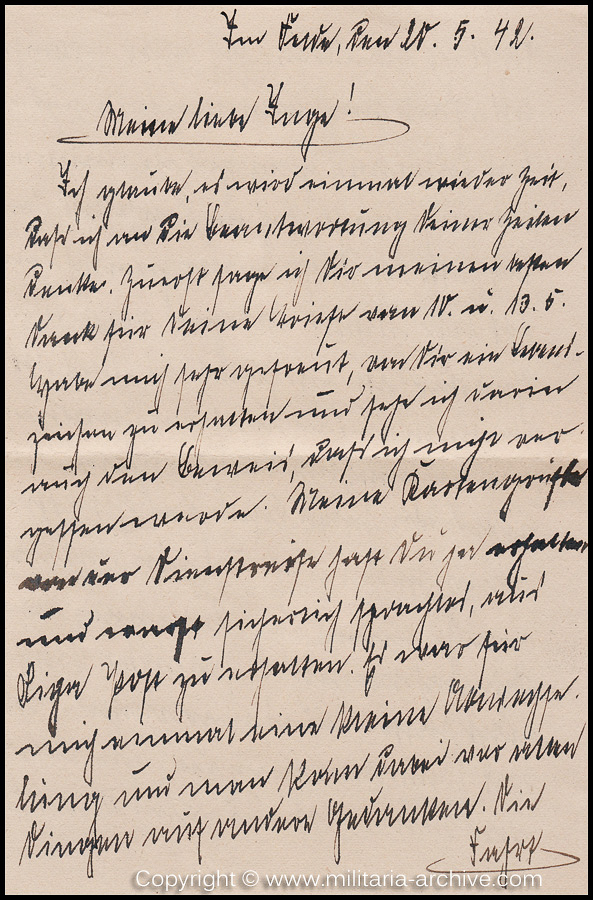 Im Felde, den 20. 5. 42.
Meine liebe Inge!
Ich glaube, es wird einmal wieder Zeit,
dass ich an die Beantwortung Deiner Zeilen
denke. Zuerst sage ich Dir meinen besten
Dank für Deine Briefe vom 10. u. 13. 5.
Habe mich sehr gefreut, von Dir ein Lebens-
zeichen zu erhalten und sehe ich darin
auch den Beweis, dass ich nicht ver-
gessen werde. Meine Kartengrüsse
von der Dienstreise hast Du ja erhalten
und warst sicherlich sprachlos, aus
Riga Post zu erhalten. Es war für
mich einmal eine kleine Abwechse-
lung und man kam dabei vor allen
Dingen auf andere Gedanken. Die
Fahrt
Copyright © www.militaria-archive.com